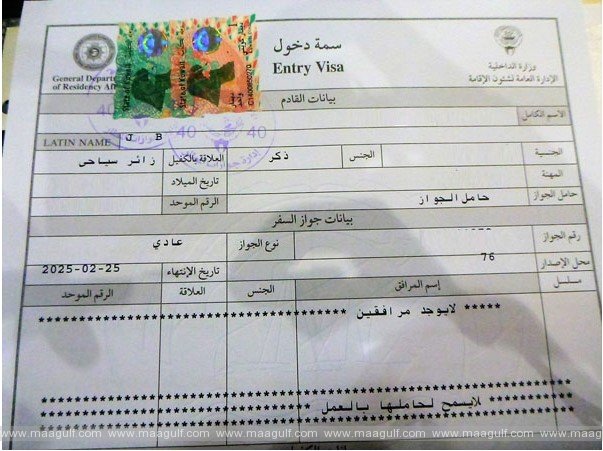 سمة دخول
Entry Visa
وزارة الداخلية
الإدارة العامة لشئون الإقامة
General Depar
of Residency Aff
بيانات القادم
الاسم الكامل
LATIN NAME J B
40 40
الجنسية الجنس ذكر العلاقة بالكفيل زائر سياحى
المهنة تاريخ الميلاد
حامل الجواز حامل الجواز الرقم الموحد
بيانات جواز السفر
رقم الجواز نوع الجواز عادي
محل الإصدار 76 تاريخ الإنتهاء 2025-02-25
مسلسل إسم المرافق الجنس العلاقة الرقم الموحد
***** لايوجد مرافقين *****
***** لايسمح لحاملها بالعمل *****
www.maagulf.com www.maagulf.com www.maagulf.com www.maagulf.com www.maagulf.com www.maagulf.com